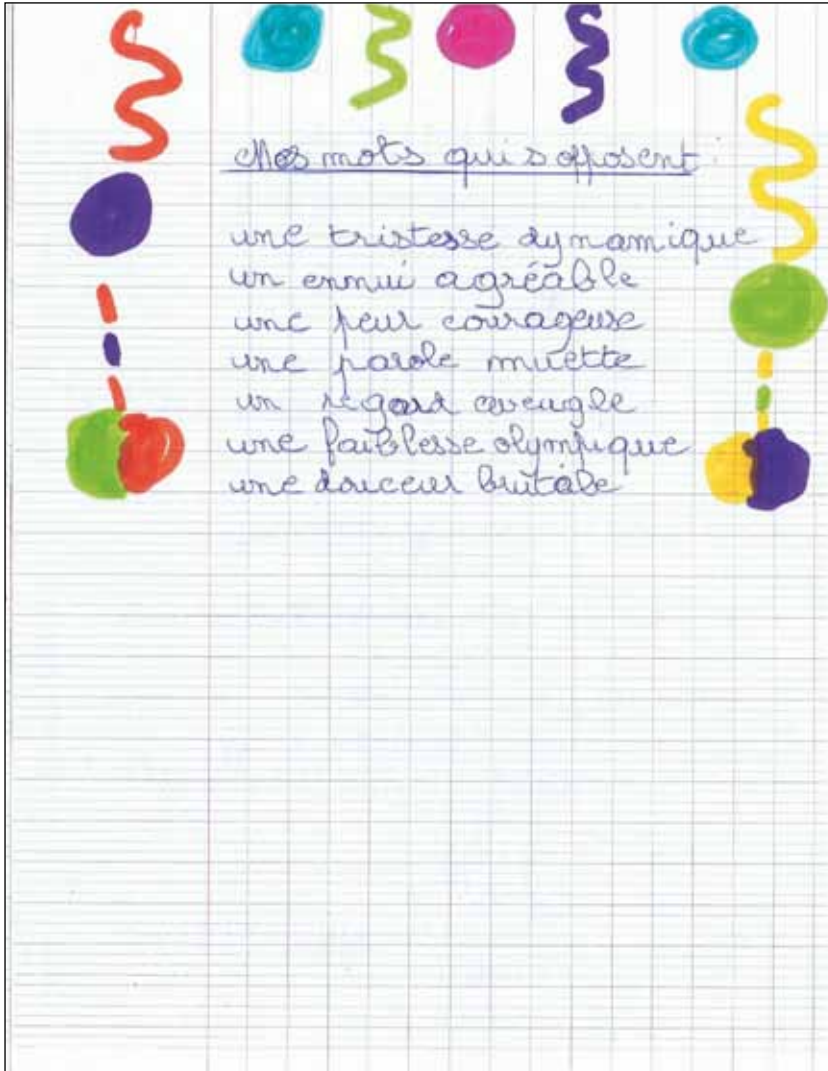 Mes mots qui s'opposent :
une tristesse dynamique
un ennui agréable
une peur courageuse
une parole muette
un regard aveugle
une faiblesse olympique
une douceur brutale